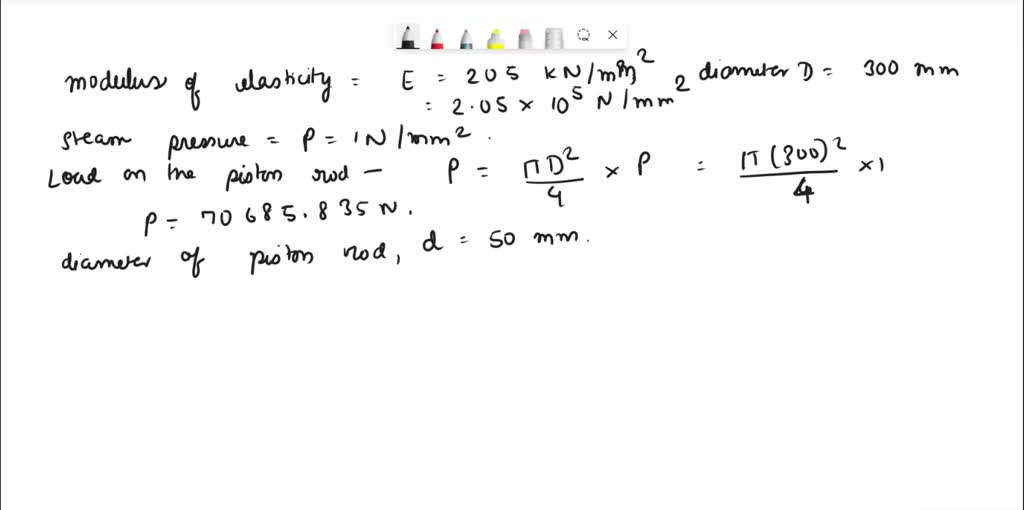 modulus of elasticity = E = 205 KN/mm² diameter D = 300 mm
= 2.05 × 10⁵ N/mm²
steam pressure = P = 1N/mm².
Load on the piston rod - P = ΠD²/4 × P = Π(300)²/4 ×1
P = 70685.835N.
diameter of piston rod, d = 50 mm.